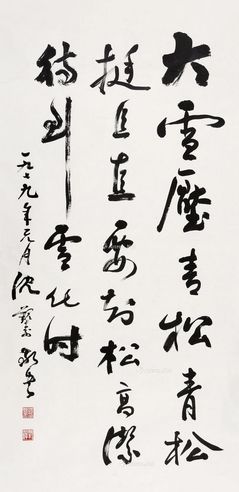 大雪壓青松青松
挺且直要知松高潔
待到雪化时
一九七九年元月沈